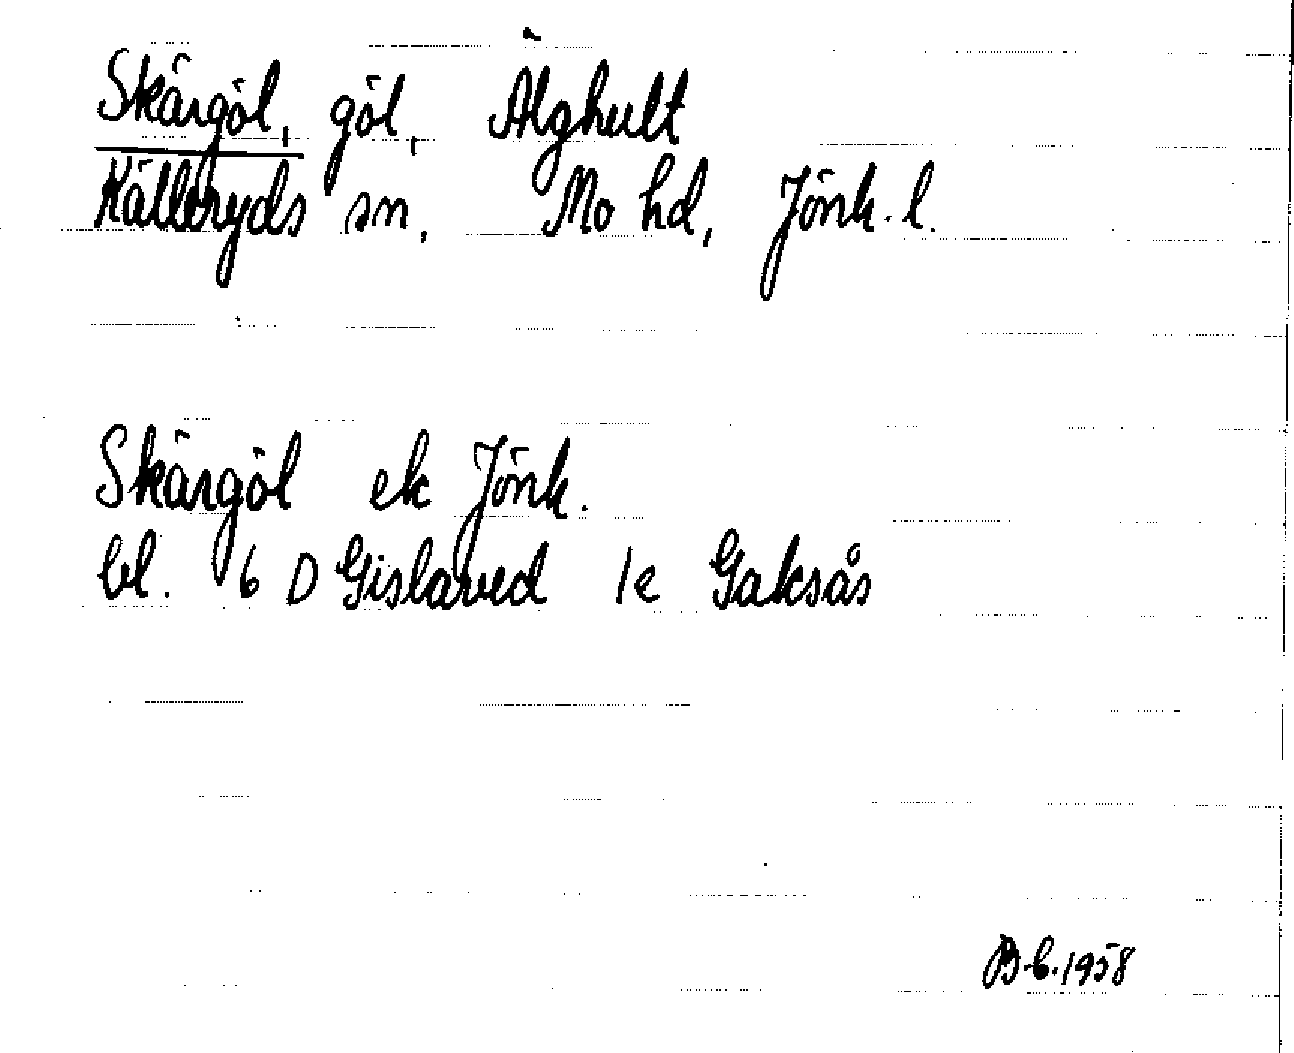 Skärgöl, göl, Älghult
Källeryds sn, Mo hd, Jönk. l.
Skärgöl ek Jönk.
bl. 6 D Gislaved 1e Gaksås
B.b. 1958